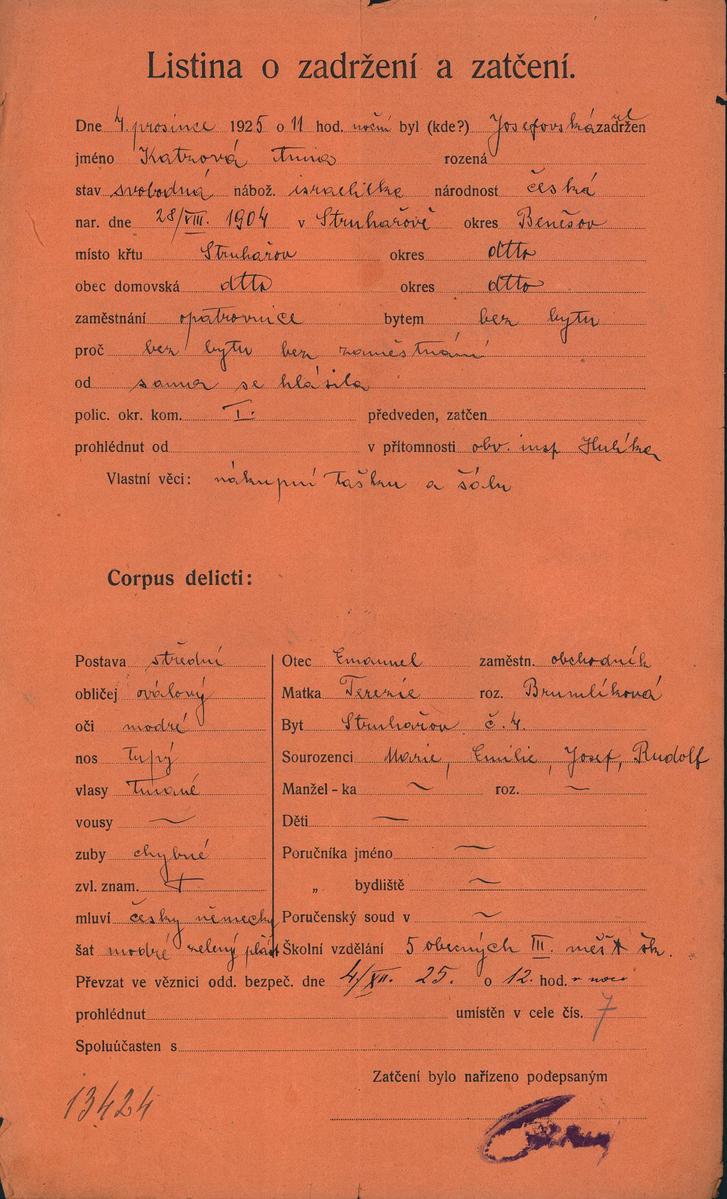 Listina o zadržení a zatčení.
Dne 4. prosince 1925 o 11 hod. noční byl (kde?) Josefovská ul zadržen
jméno Katzová Anna rozená
stav svobodná nábož. israelitka národnost česká
nar. dne 28/VIII. 1904 v Struhařově okres Benešov
místo křtu Struhařov okres dtto
obec domovská dtto okres dtto
zaměstnání opatrovnice bytem bez bytu
proč bez bytu bez zaměstnání
od sama se hlásila
polic. okr. kom. I. předveden, zatčen
prohlédnut od v přítomnosti obv. insp
Vlastní věci: nákupní tašku a šálu
Corpus delicti:
Postava střední Otec Emanuel zaměstn. obchodník
obličej oválový Matka Terezie roz. Brumlíková
oči modré Byt Struhařov č. 4.
nos tupý Sourozenci Marie, Emilie, Josef, Rudolf
vlasy tmavé Manžel-ka ~ roz. ~
vousy ~ Děti ~
zuby chybné Poručníka jméno ~
zvl. znam. „ bydliště ~
mluví česky německy Poručenský soud v ~
šat modré zelený plášť Školní vzdělání 5 obecných III. měšť šk.
Převzat ve věznici odd. bezpeč. dne 4/XII. 25. o 12. hod. v noci
prohlédnut umístěn v cele čís. 7
Spoluúčasten s
Zatčení bylo nařízeno podepsaným
13424